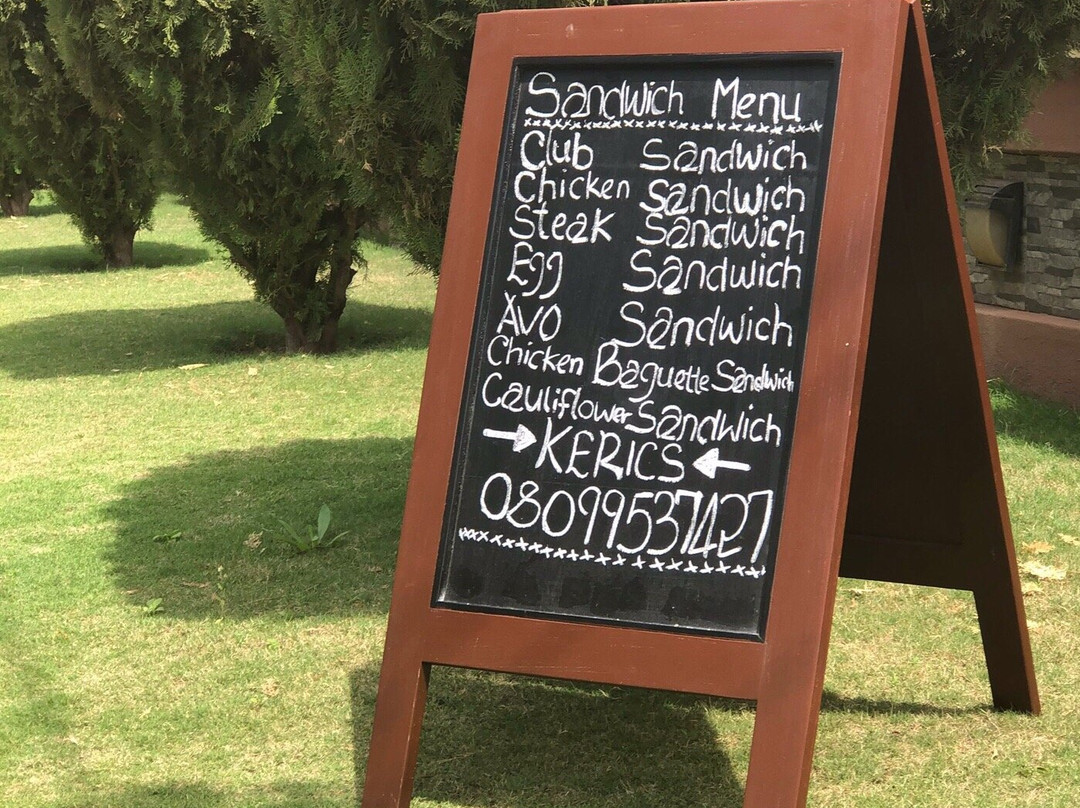 Sandwich Menu
Club Sandwich
Chicken Sandwich
Steak Sandwich
Egg Sandwich
Avo Sandwich
Chicken Baguette Sandwich
Cauliflower Sandwich
→ KERICS ←
08099537427